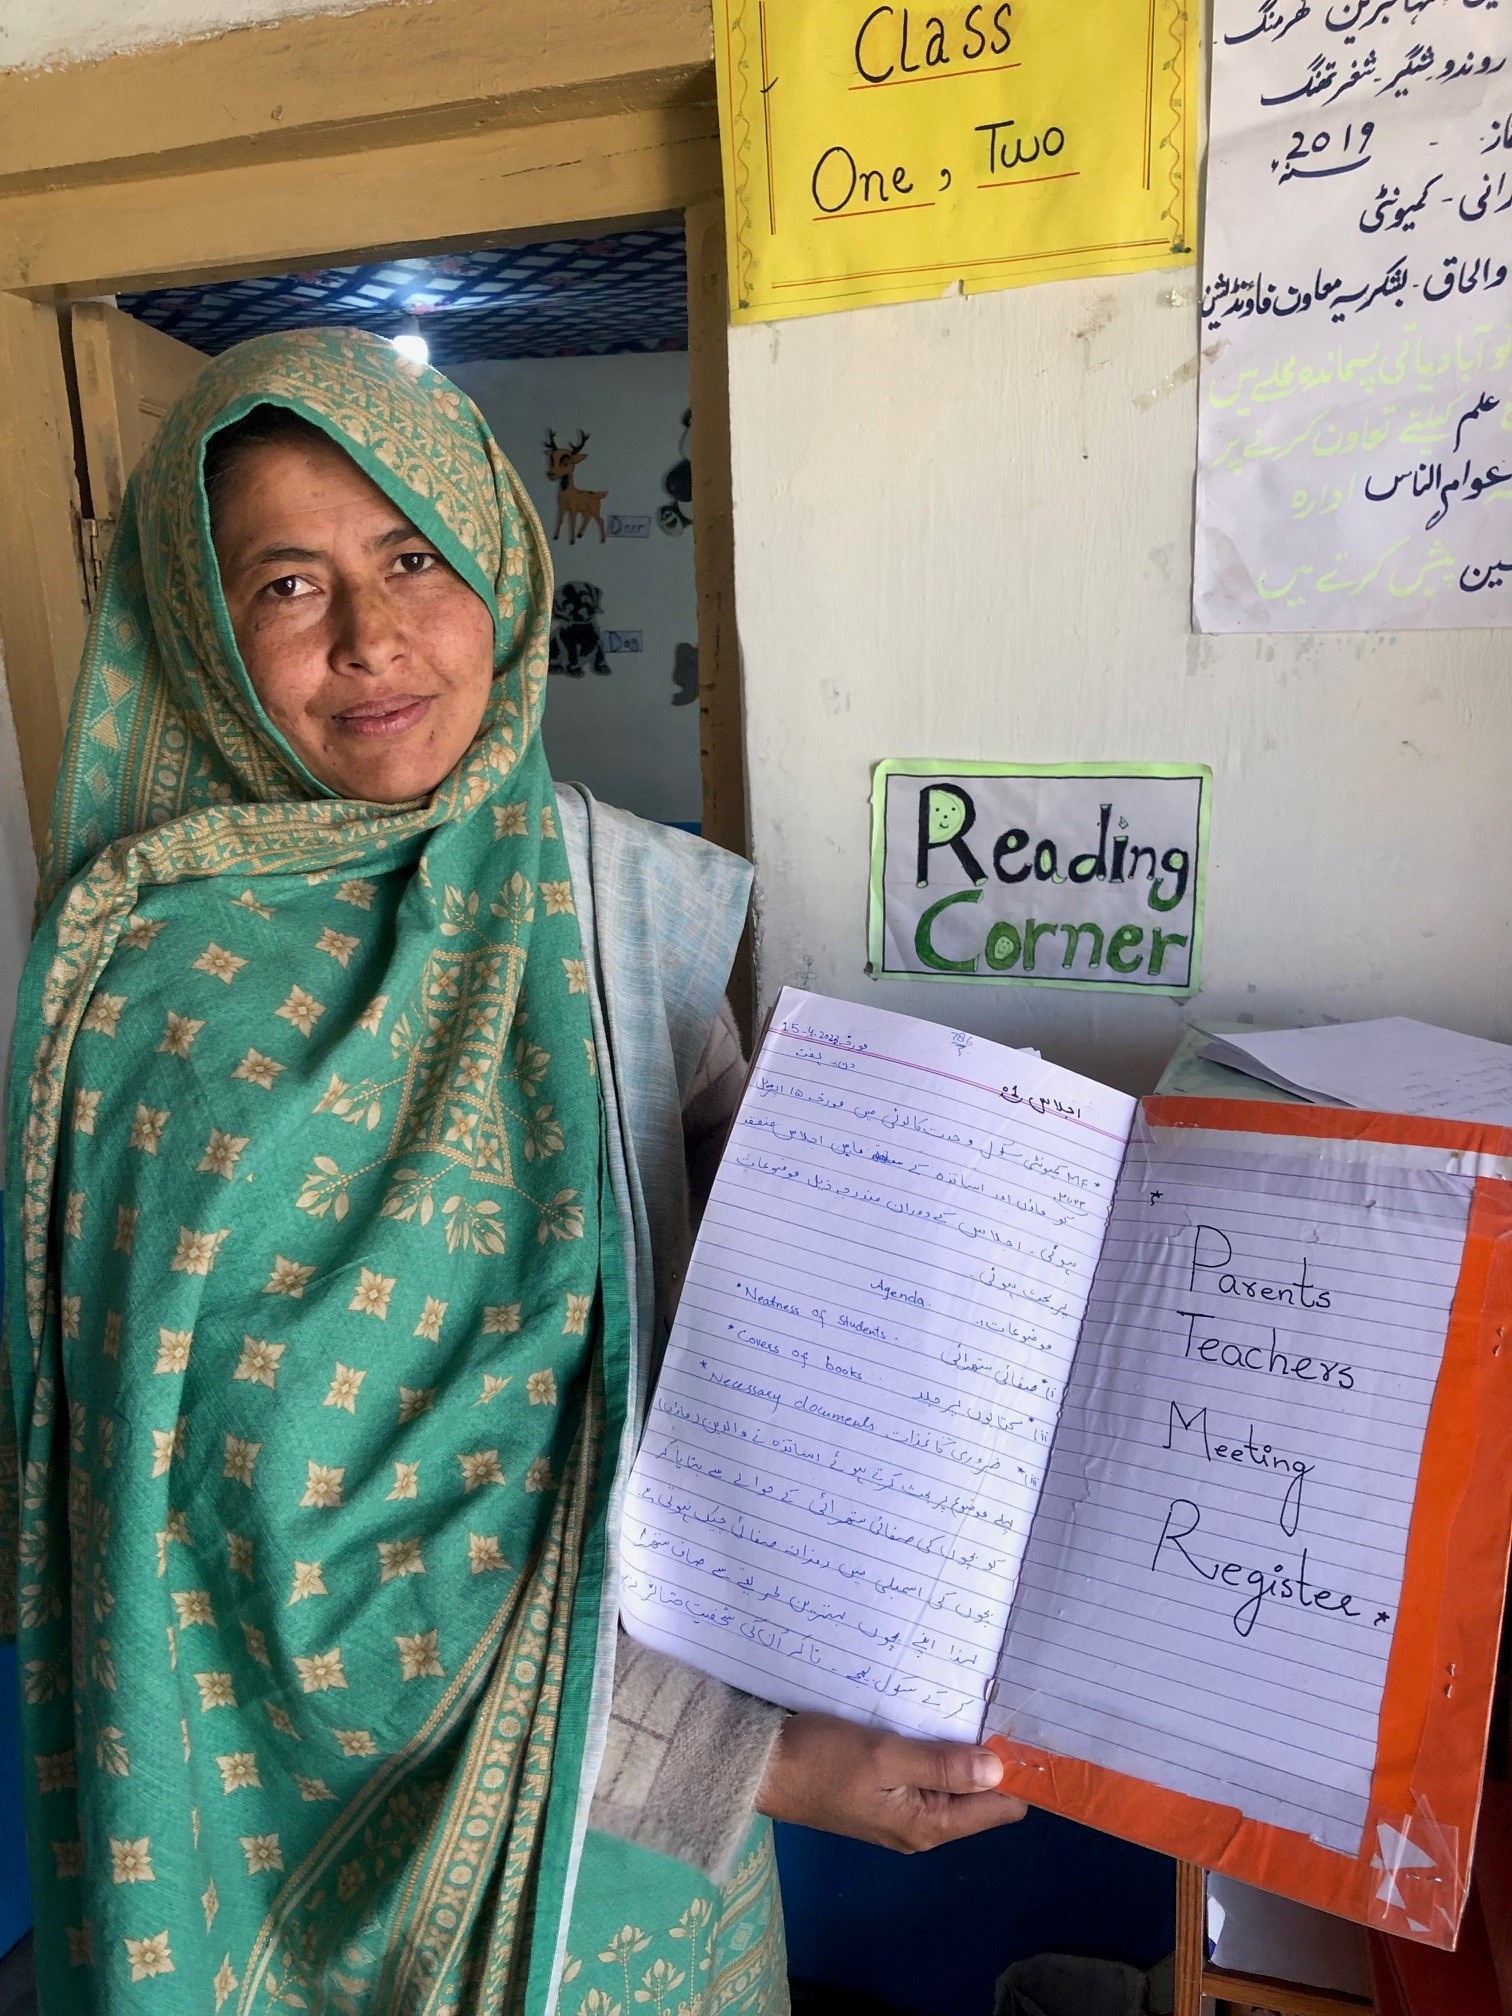 Class
One, Two
روندو شگر۔ شغرتھنگ
2019
سنہء
رانی - کمیونٹی
والحاق - بشکریہ معاون فاؤنڈیشن
آبادیاتی پسماندہ محلے میں
علم کیلئے تعاون کرنے پر
عوام الناس ادارہ
پیش کرتے ہیں
Deer
Dog
Reading
Corner
786
مورخہ 15-4-2023
دن۔ ہفتہ
اجلاس 01
*MF کمیونٹی سکول وحدت کالونی میں مورخہ ۱۵ اپریل
۲۰۲۳ کو ماؤں اور اساتذہ کے مابین اجلاس منعقد
ہوئی۔ اجلاس کے دوران مندرجہ ذیل موضوعات
پر بحث ہوئی۔
Agenda.
موضوعات:۔
i)* صفائی ستھرائی *Neatness of students.
ii)* کتابوں پر جلد *Covers of books.
iii)* ضروری کاغذات *Necessary documents
پہلے موضوع پر بحث کرتے ہوئے اساتذہ نے والدین (ماؤں)
کو بچوں کی صفائی ستھرائی کے حوالے سے بتایا کہ
بچوں کی اسمبلی میں روزانہ صفائی چیک ہوتی ہے۔
لہذا اپنے بچوں بہترین طریقے سے صاف ستھرا
کر کے سکول بھیجے۔ تاکہ اُن کی شخصیت متاثر نہ
* Parents
Teachers
Meeting
Register *